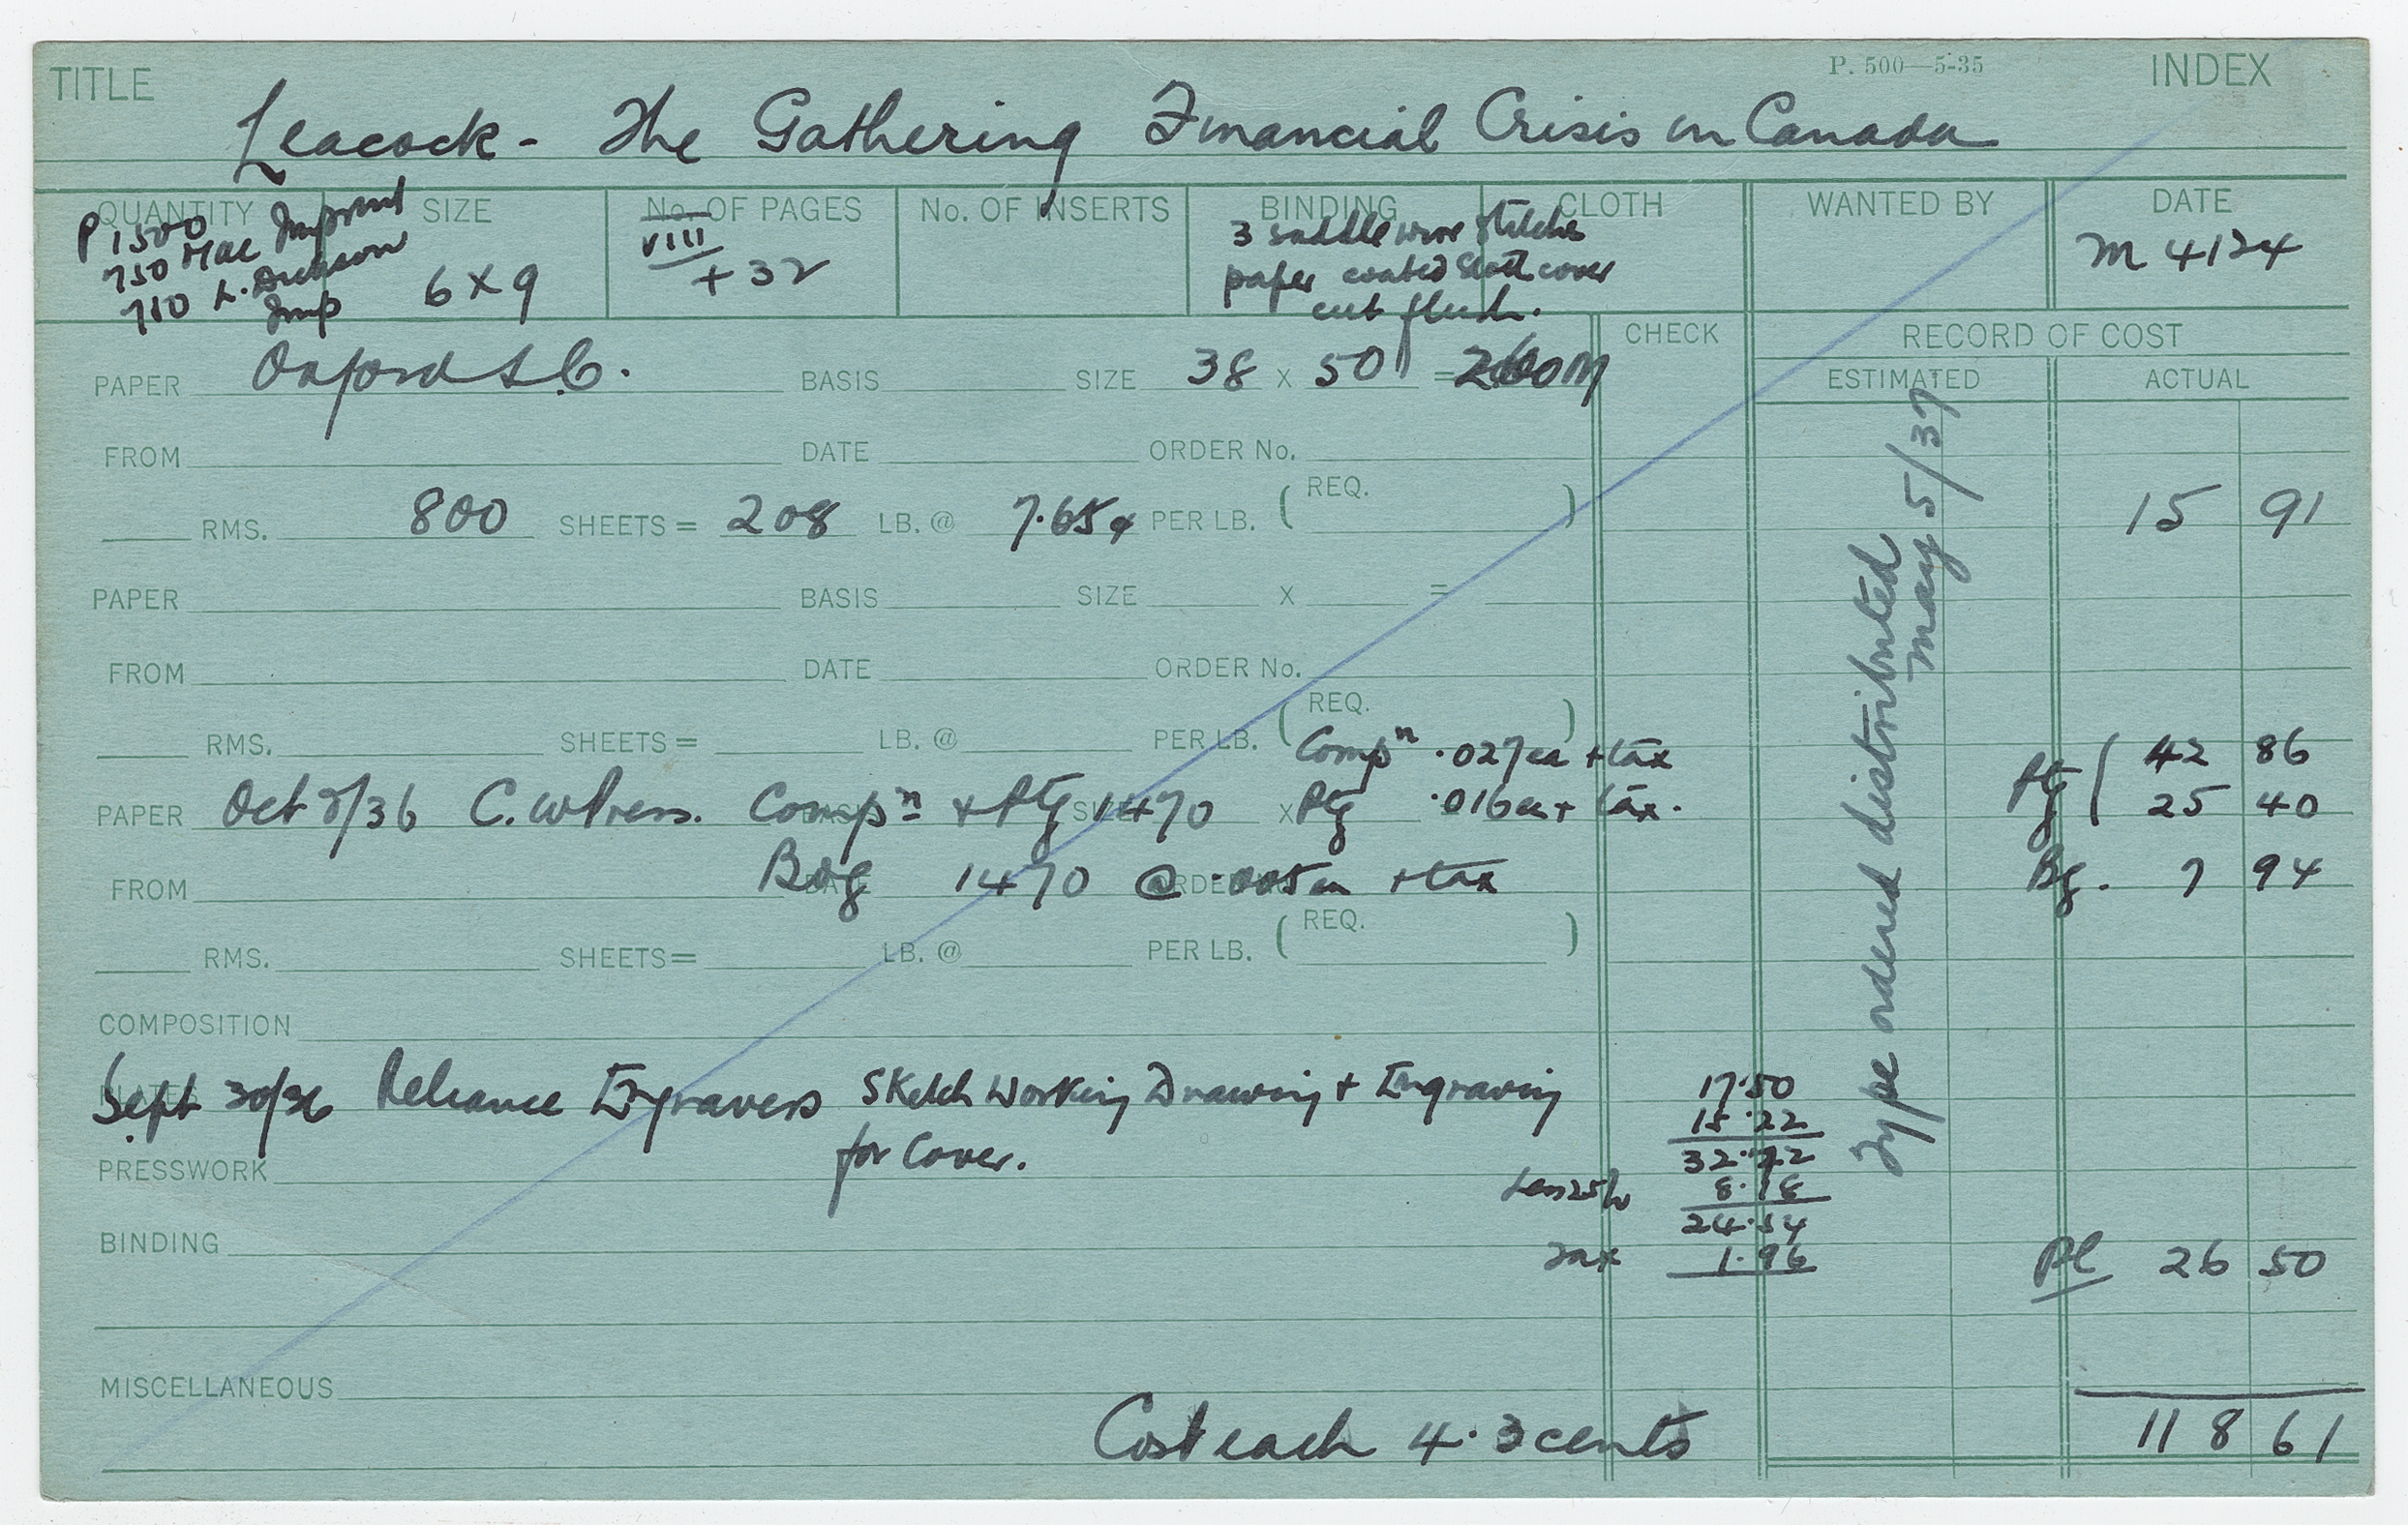 TITLE
P. 500—5-35
INDEX
Leacock - The Gathering Financial Crisis in Canada
QUANTITY SIZE No. OF PAGES No. OF INSERTS BINDING CLOTH WANTED BY DATE
P 1500
750 Mac Imprint
L. Dickson
Imp
6 x 9
VIII
+ 32
3 saddle wire stitches
paper coated Scott cover
cut flush.
M 4124
CHECK
RECORD OF COST
ESTIMATED ACTUAL
PAPER Oxford S.C. BASIS SIZE 38 x 50 = M
FROM DATE ORDER No.
RMS. 800 SHEETS = 208 LB. @ 7.65¢ PER LB. ( REQ. ) 15 91
PAPER BASIS SIZE X =
FROM DATE ORDER No.
RMS. SHEETS = LB. @ PER LB. ( REQ. )
Compn .027 ea + tax 42 86
PAPER Oct 8/36 C. W Press. Compn + Ptg SIZE 1470 X Ptg .016 ea + tax. Ptg ( 25 40
FROM Bdg DATE 1470 @ ORDER .005 ea + tax Bg. 7 94
RMS. SHEETS = LB. @ PER LB. ( REQ. )
COMPOSITION
PLATES Sept 30/36 Reliance Engravers Sketch Working Drawing + Engraving 17.50
15.22
for Cover. 32.72
PRESSWORK Less 25% 8.18
24.54
BINDING Tax 1.96 Pl 26 50
Type ordered distributed
May 5/37
MISCELLANEOUS
Cost each 4.3 cents 118 61